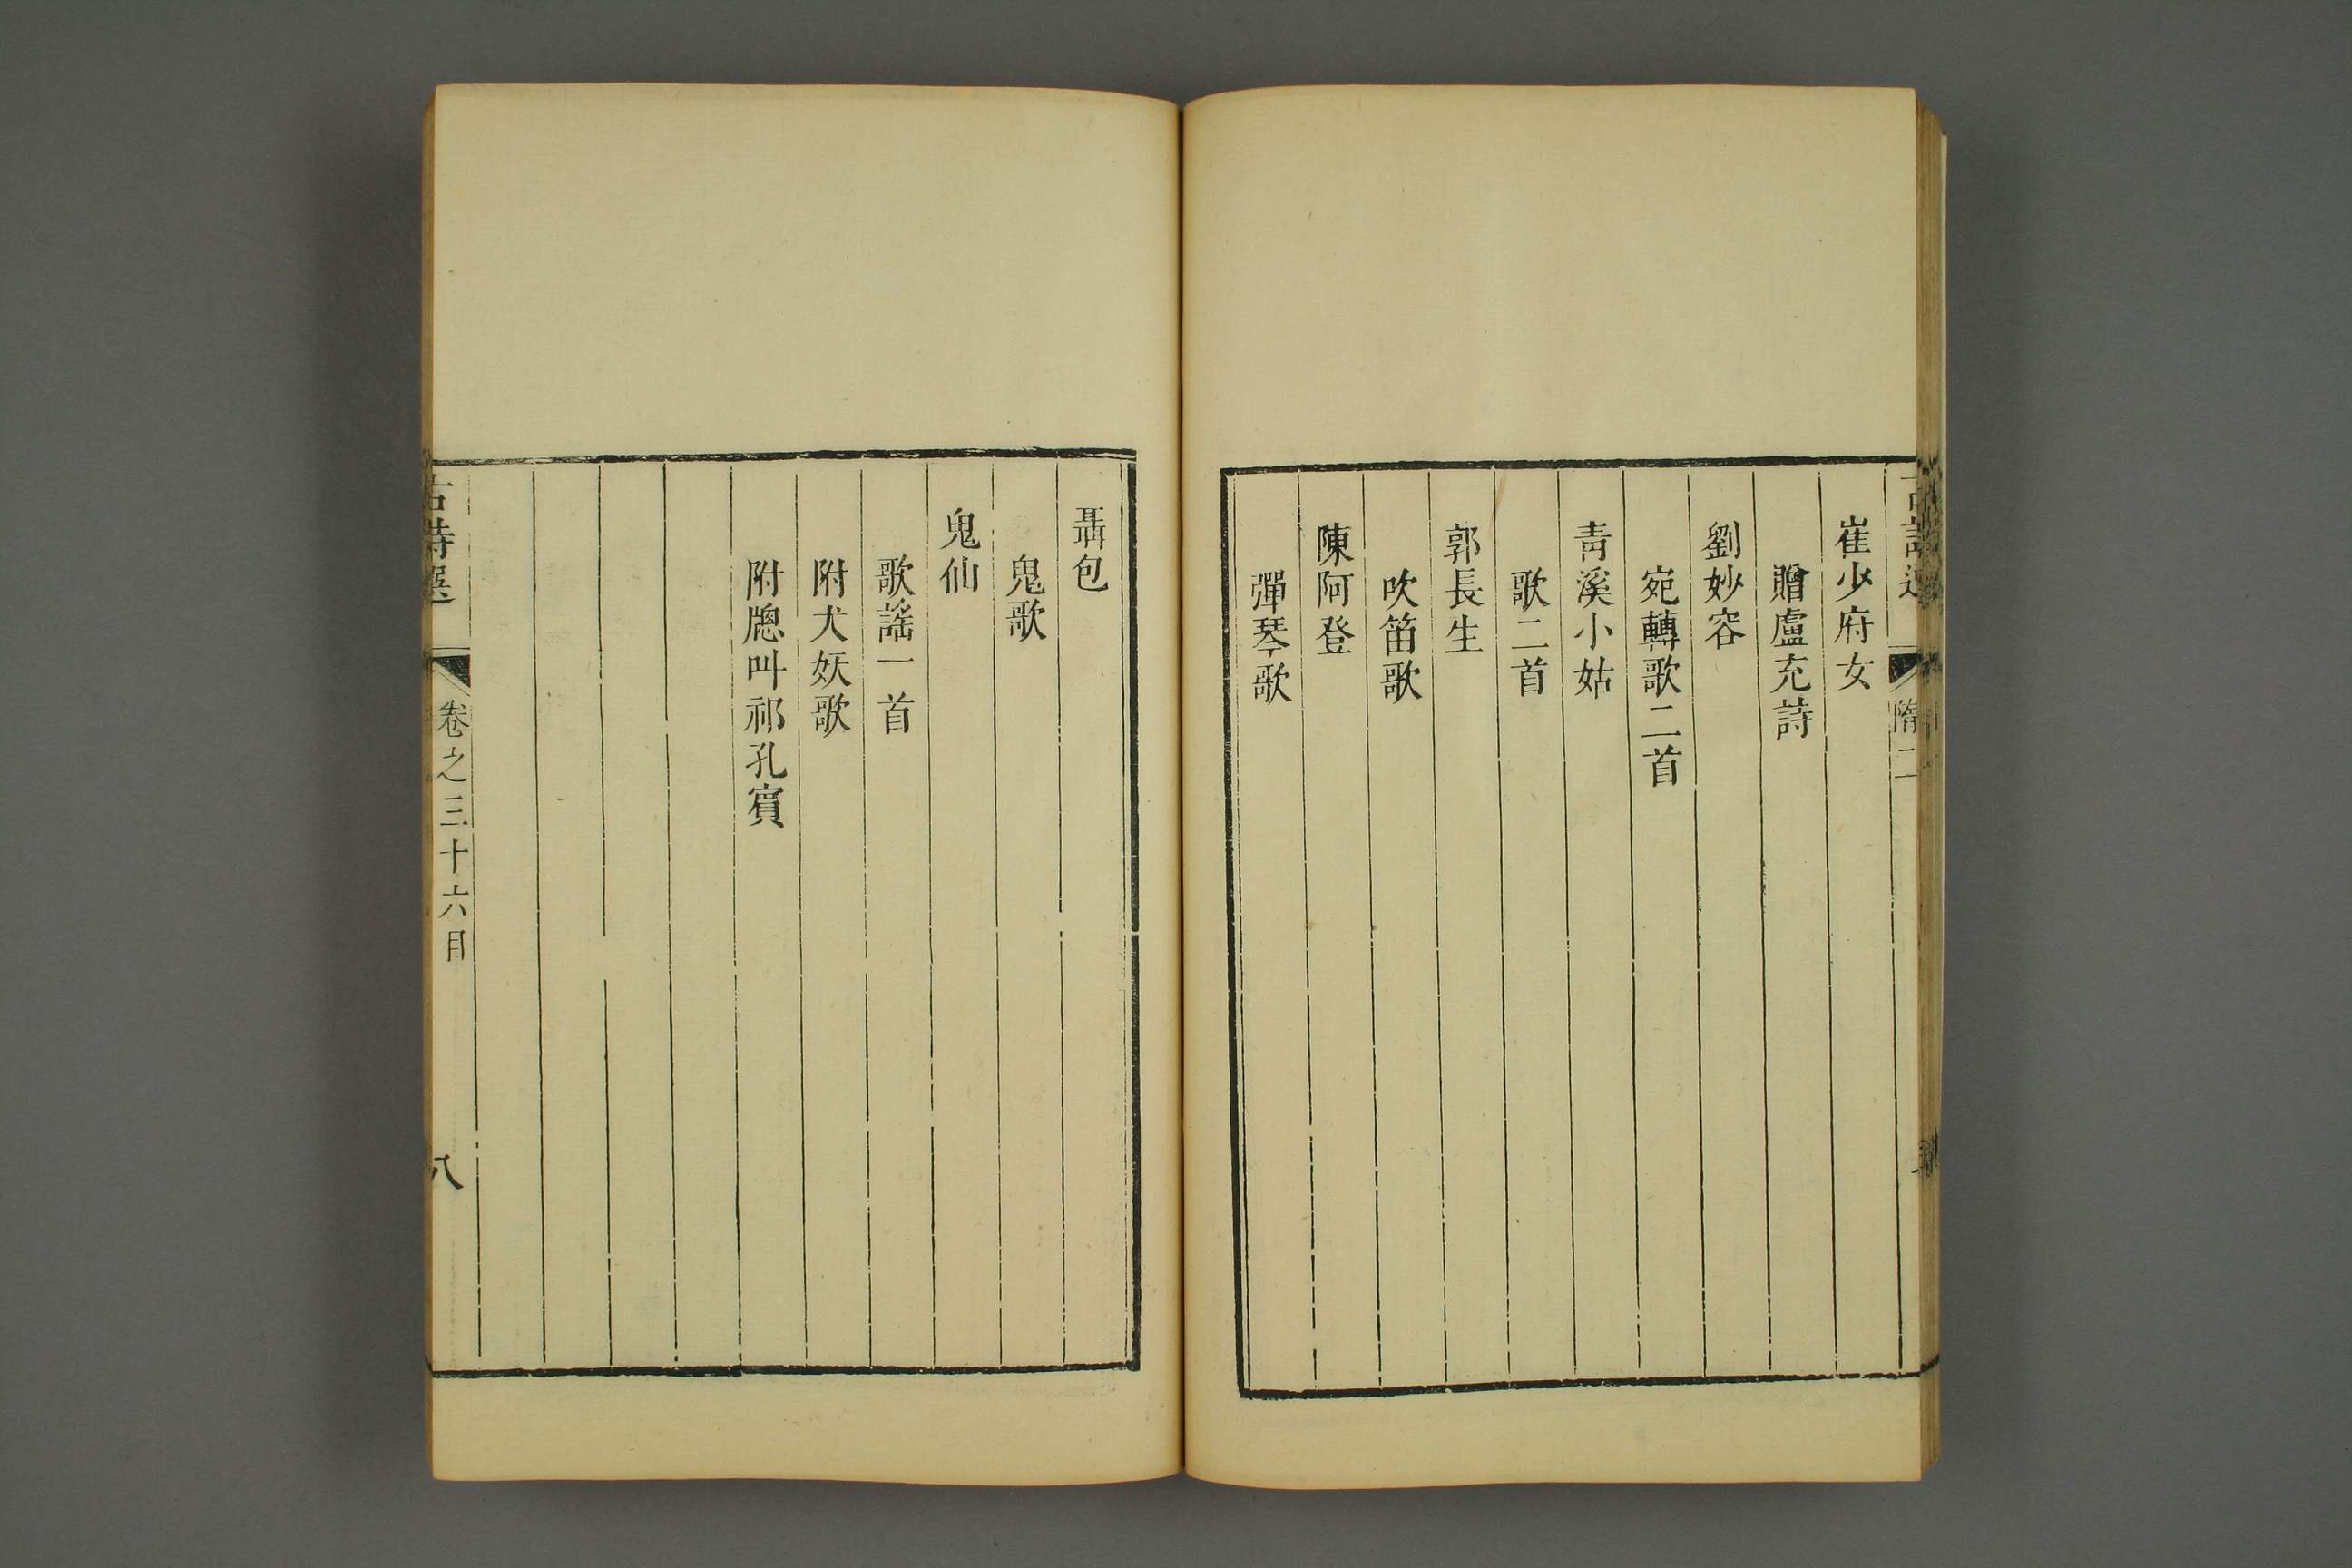 隋二
崔少府女
贈盧充詩
劉妙容
宛轉歌二首
青溪小姑
歌二首
郭長生
吹笛歌
陳阿登
彈琴歌
聶包
鬼歌
鬼仙
歌謠一首
附犬妖歌
附牕叫祁孔賓
古詩選
卷之三十六目
八